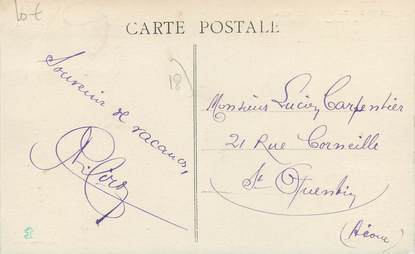 Lot
CARTE POSTALE
18
Souvenir de vacances,
Monsieur Lucien Carpentier
21 Rue Corneille
St Quentin